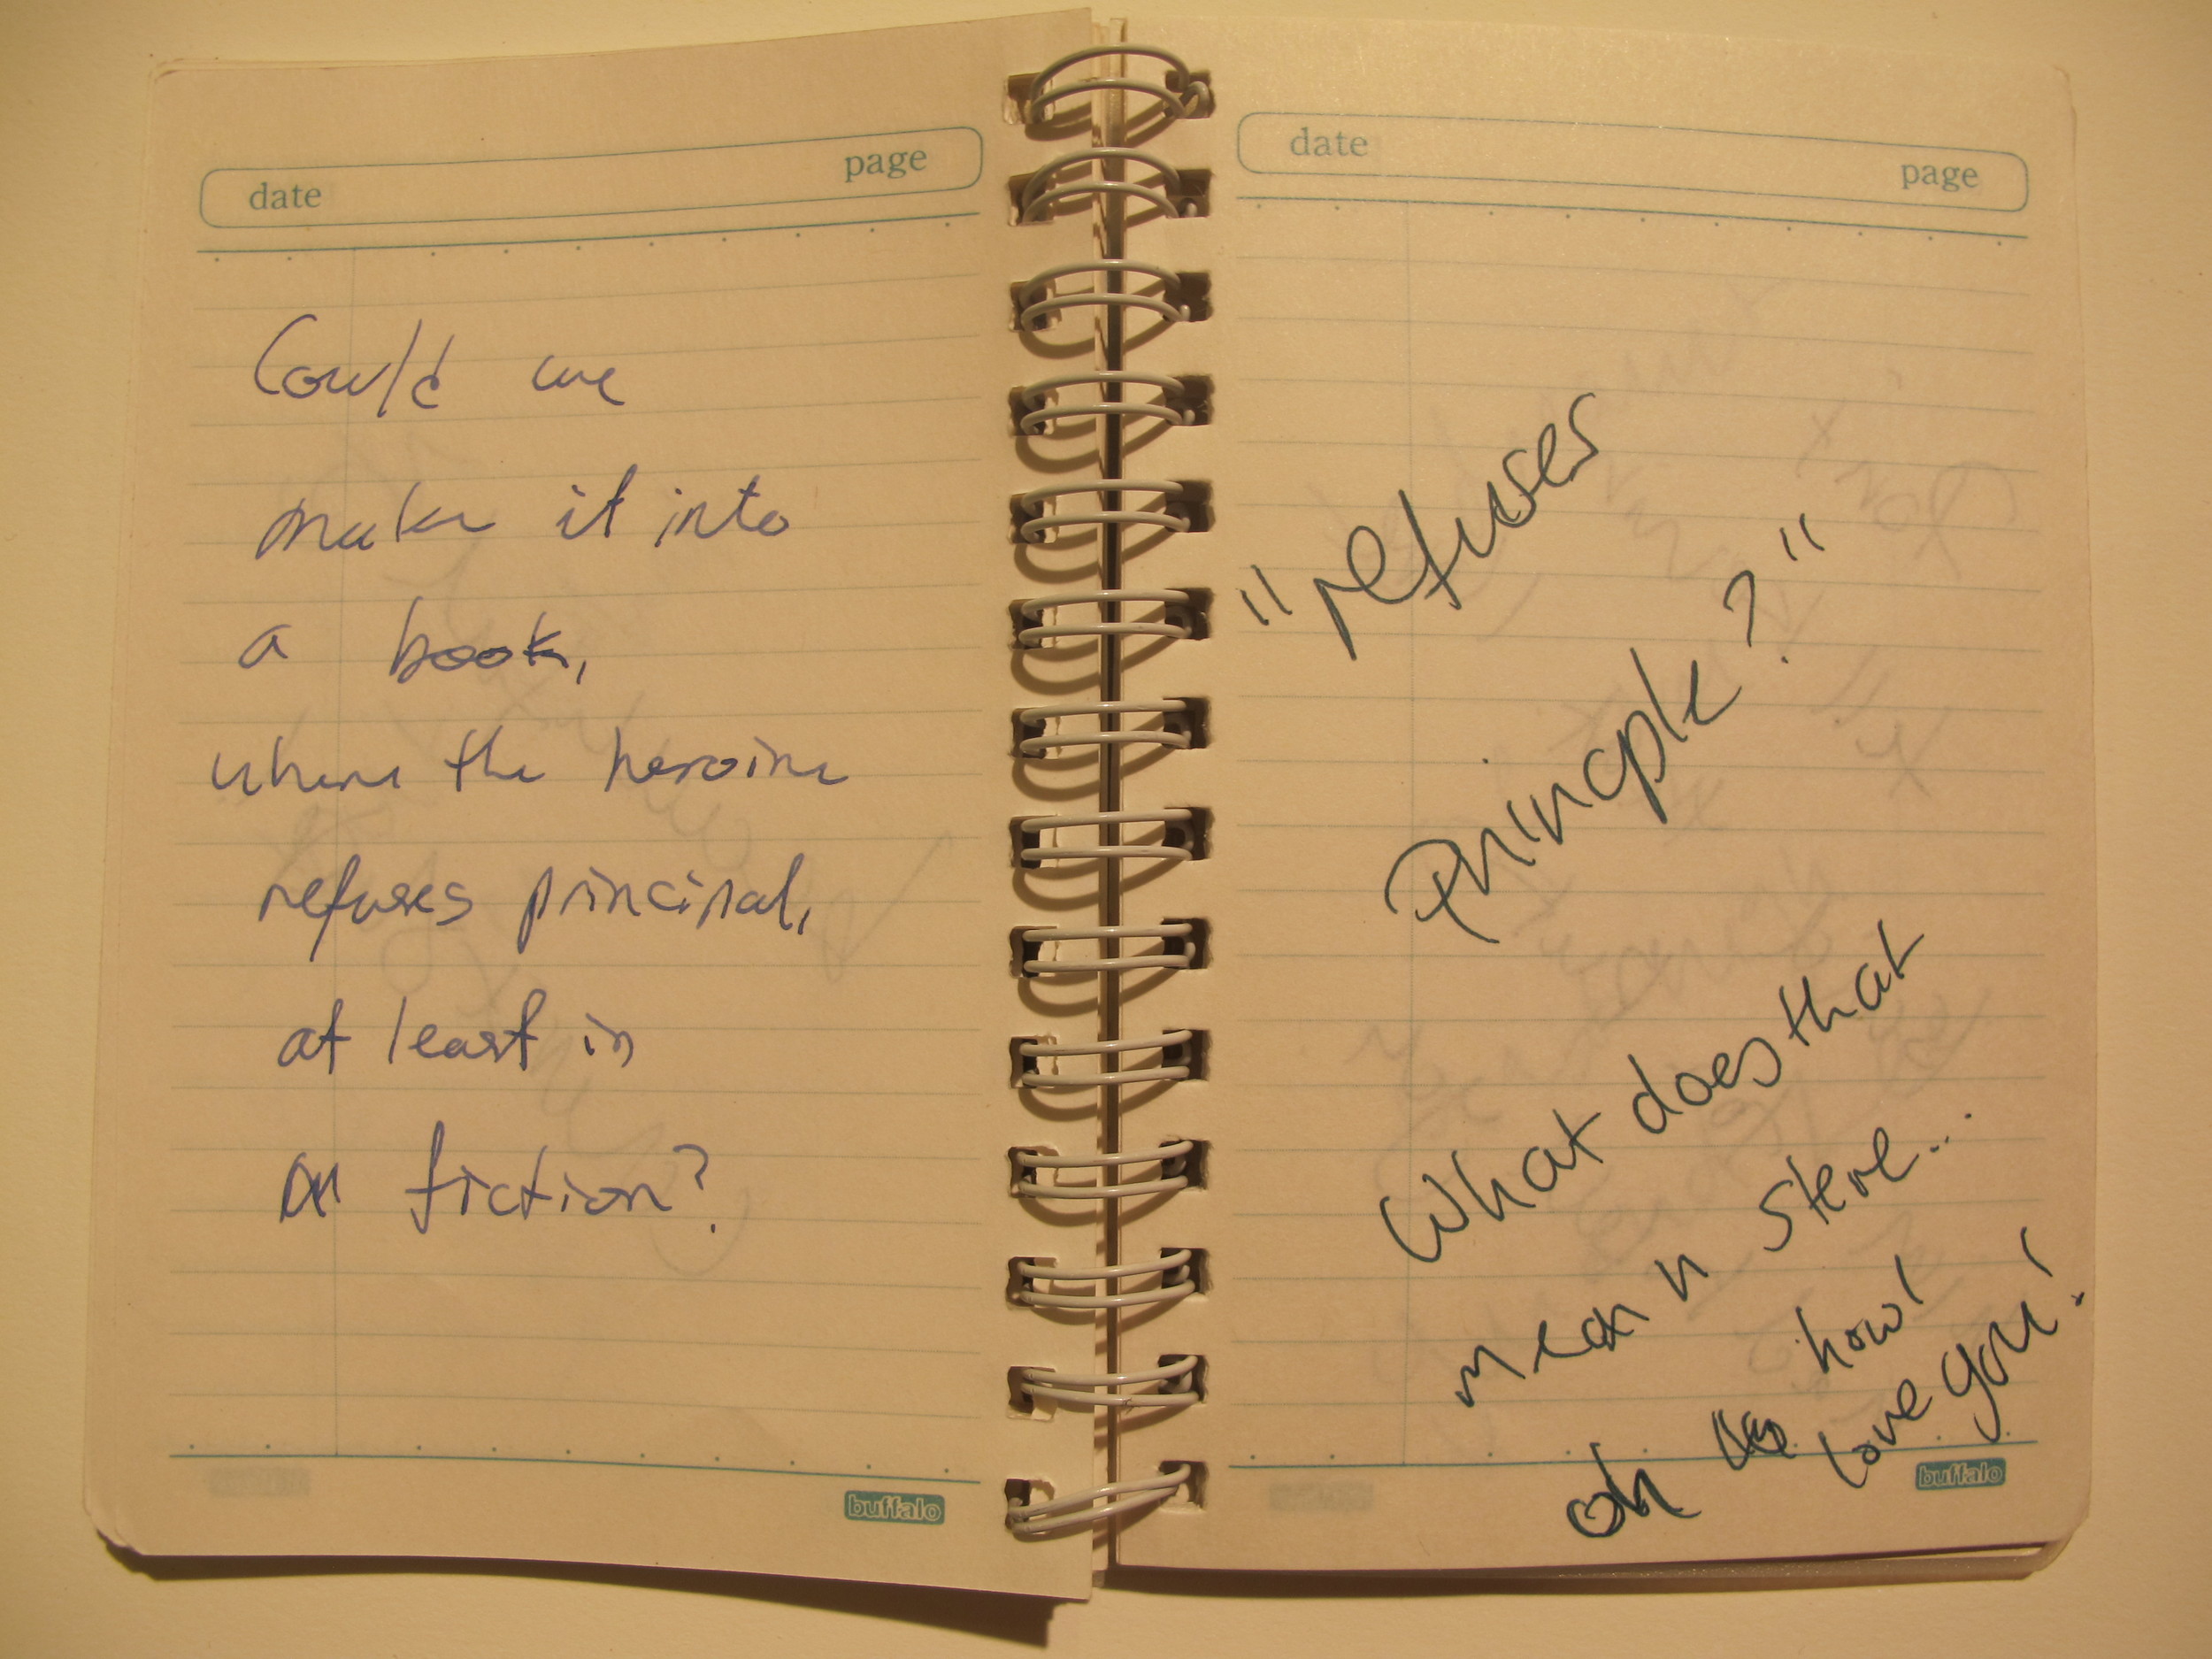 date page
Could we
make it into
a book,
where the heroine
refuses principal,
at least in
fiction?
buffalo
date page
"refuses
Principle?"
What does that
mean Steve...
oh how I
love you!
buffalo